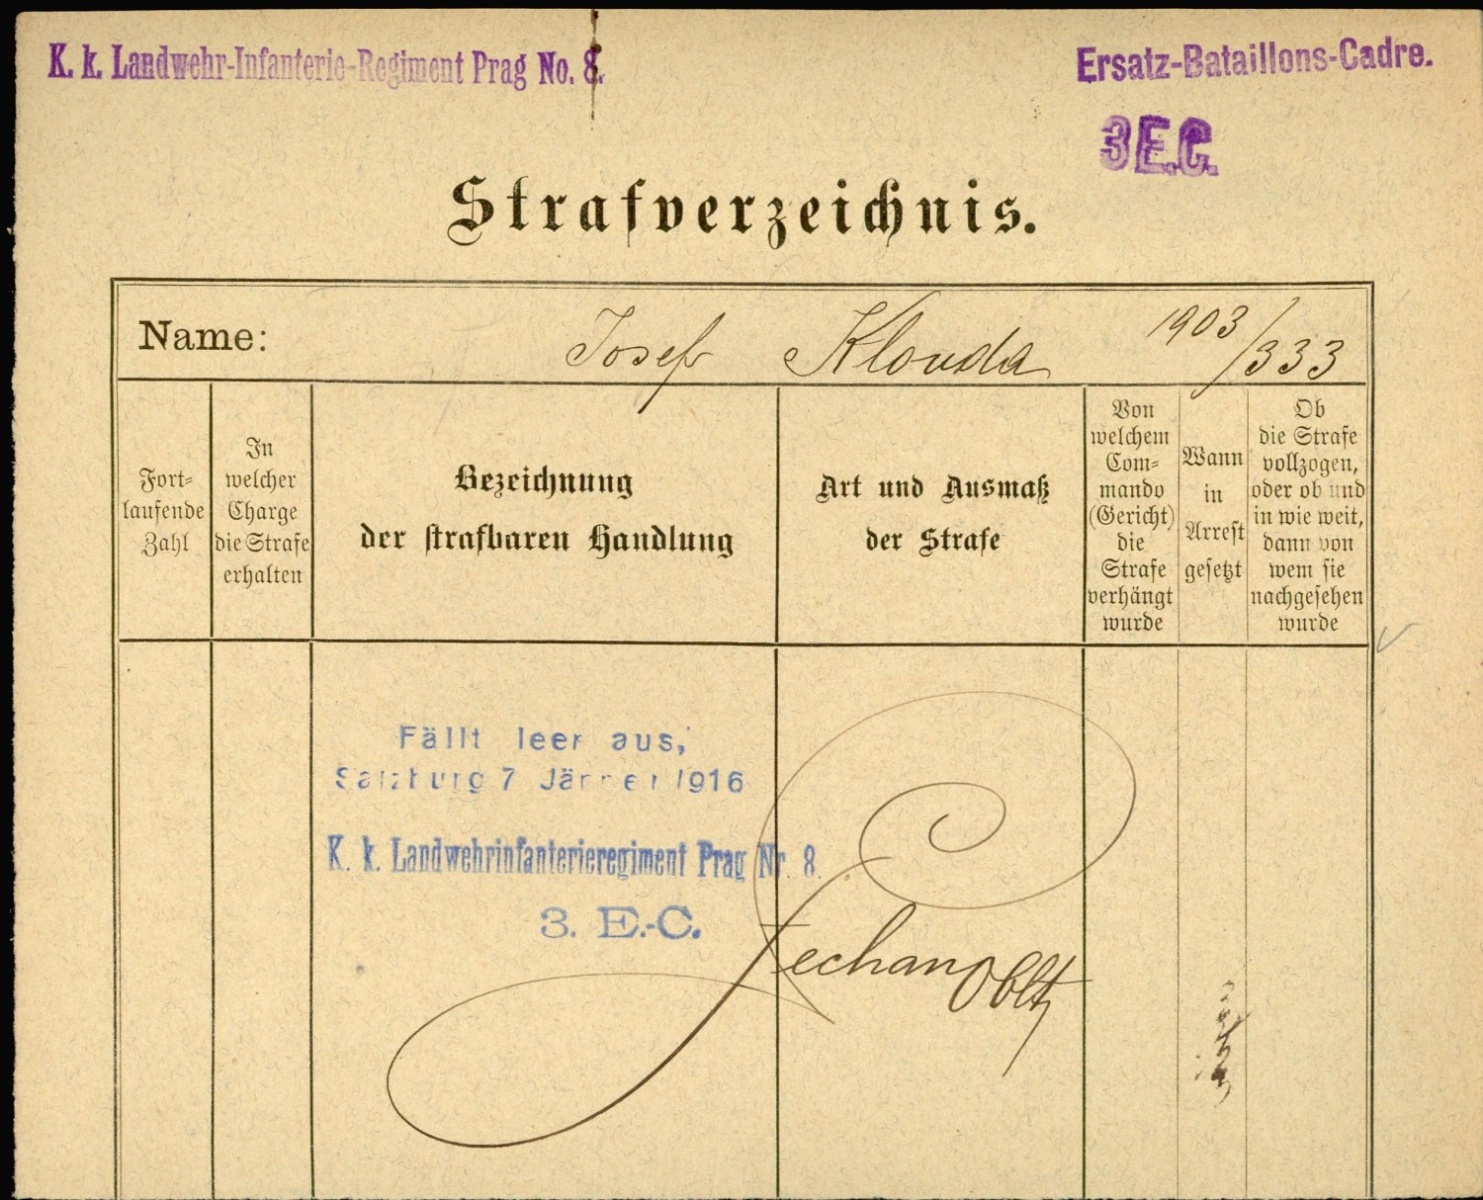 K. k. Landwehr-Infanterie-Regiment Prag No. 8.
Ersatz-Bataillons-Cadre.
3 E.C.
Strafverzeichnis.
Name: Josef Klouda 1903/333
Fort-
laufende
Zahl
In
welcher
Charge
die Strafe
erhalten
Bezeichnung
der strafbaren Handlung
Art und Ausmaß
der Strafe
Von
welchem
Com-
mando
(Gericht)
die
Strafe
verhängt
wurde
Wann
in
Arrest
gesetzt
Ob
die Strafe
vollzogen,
oder ob und
in wie weit,
dann von
wem sie
nachgesehen
wurde
Fällt leer aus,
Salzburg 7 Jänner 1916
K. k. Landwehrinfanterieregiment Prag Nr. 8.
3. E.-C.
Oblt